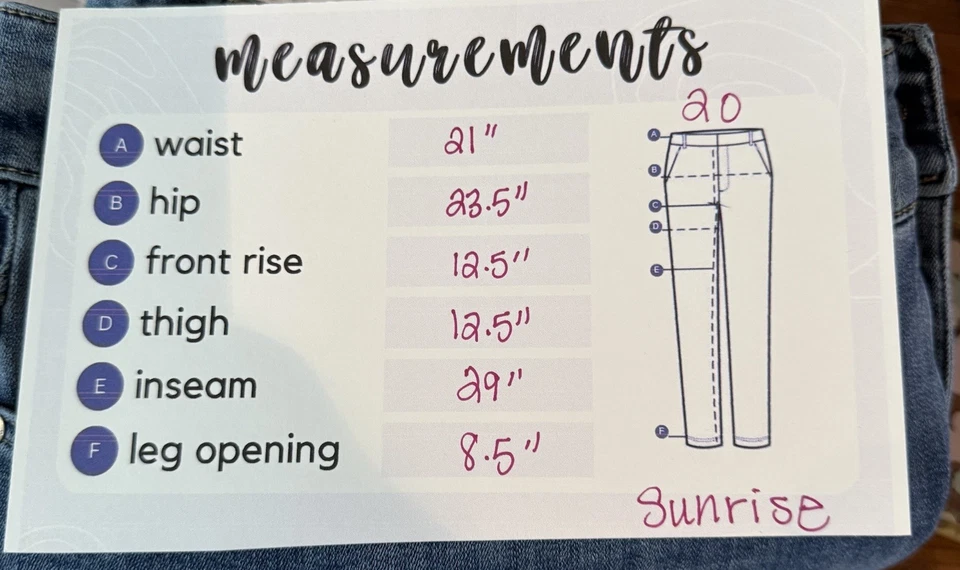 measurements
20
A waist 21"
B hip 23.5"
C front rise 12.5"
D thigh 12.5"
E inseam 29"
F leg opening 8.5"
A
B
C
D
E
F
Sunrise